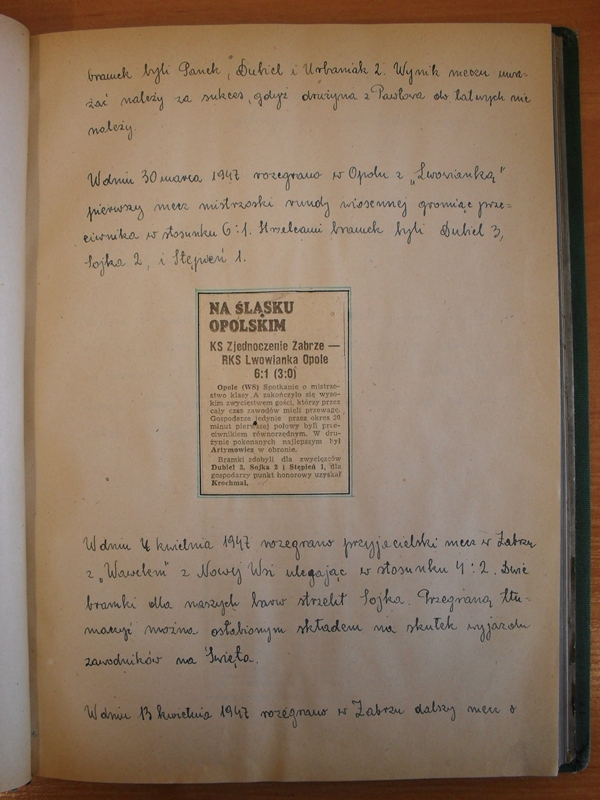 bramek byli Panek, Dubiel i Urbaniak 2. Wynik meczu uwa-
żać należy za sukces, gdyż drużyna z Pawłowa do łatwych nie
należy.
W dniu 30 marca 1947 rozegrano w Opolu z „Lwowianką"
pierwszy mecz mistrzoski rundy wiosennej gromiąc prze=
ciwnika w stosunku 6:1. Strzelcami bramek byli Dubiel 3,
Sojka 2, i Stępień 1.
NA ŚLĄSKU
OPOLSKIM
KS Zjednoczenie Zabrze —
RKS Lwowianka Opole
6:1 (3:0)
Opole (WS) Spotkanie o mistrzo-
stwo klasy A zakończyło się wyso-
kim zwycięstwem gości, którzy przez
cały czas zawodów mieli przewagę.
Gospodarze jedynie przez okres 20
minut pierwszej połowy byli prze-
ciwnikiem równorzędnym. W dru-
żynie pokonanych najlepszym był
Artymowicz w obronie.
Bramki zdobyli dla zwycięzców
Dubiel 3, Sojka 2 i Stępień 1, dla
gospodarzy punkt honorowy uzyskał
Krochmal.
W dniu 4 kwietnia 1947 rozegrano przyjacielski mecz w Zabrzu
z „Wawelem" z Nowej Wsi ulegając w stosunku 4:2. Dwie
bramki dla naszych barw strzelił Sojka. Przegraną tłu-
maczyć można osłabionym składem na skutek wyjazdu
zawodników na Święta.
W dniu 13 kwietnia 1947 rozegrano w Zabrzu dalszy mecz o